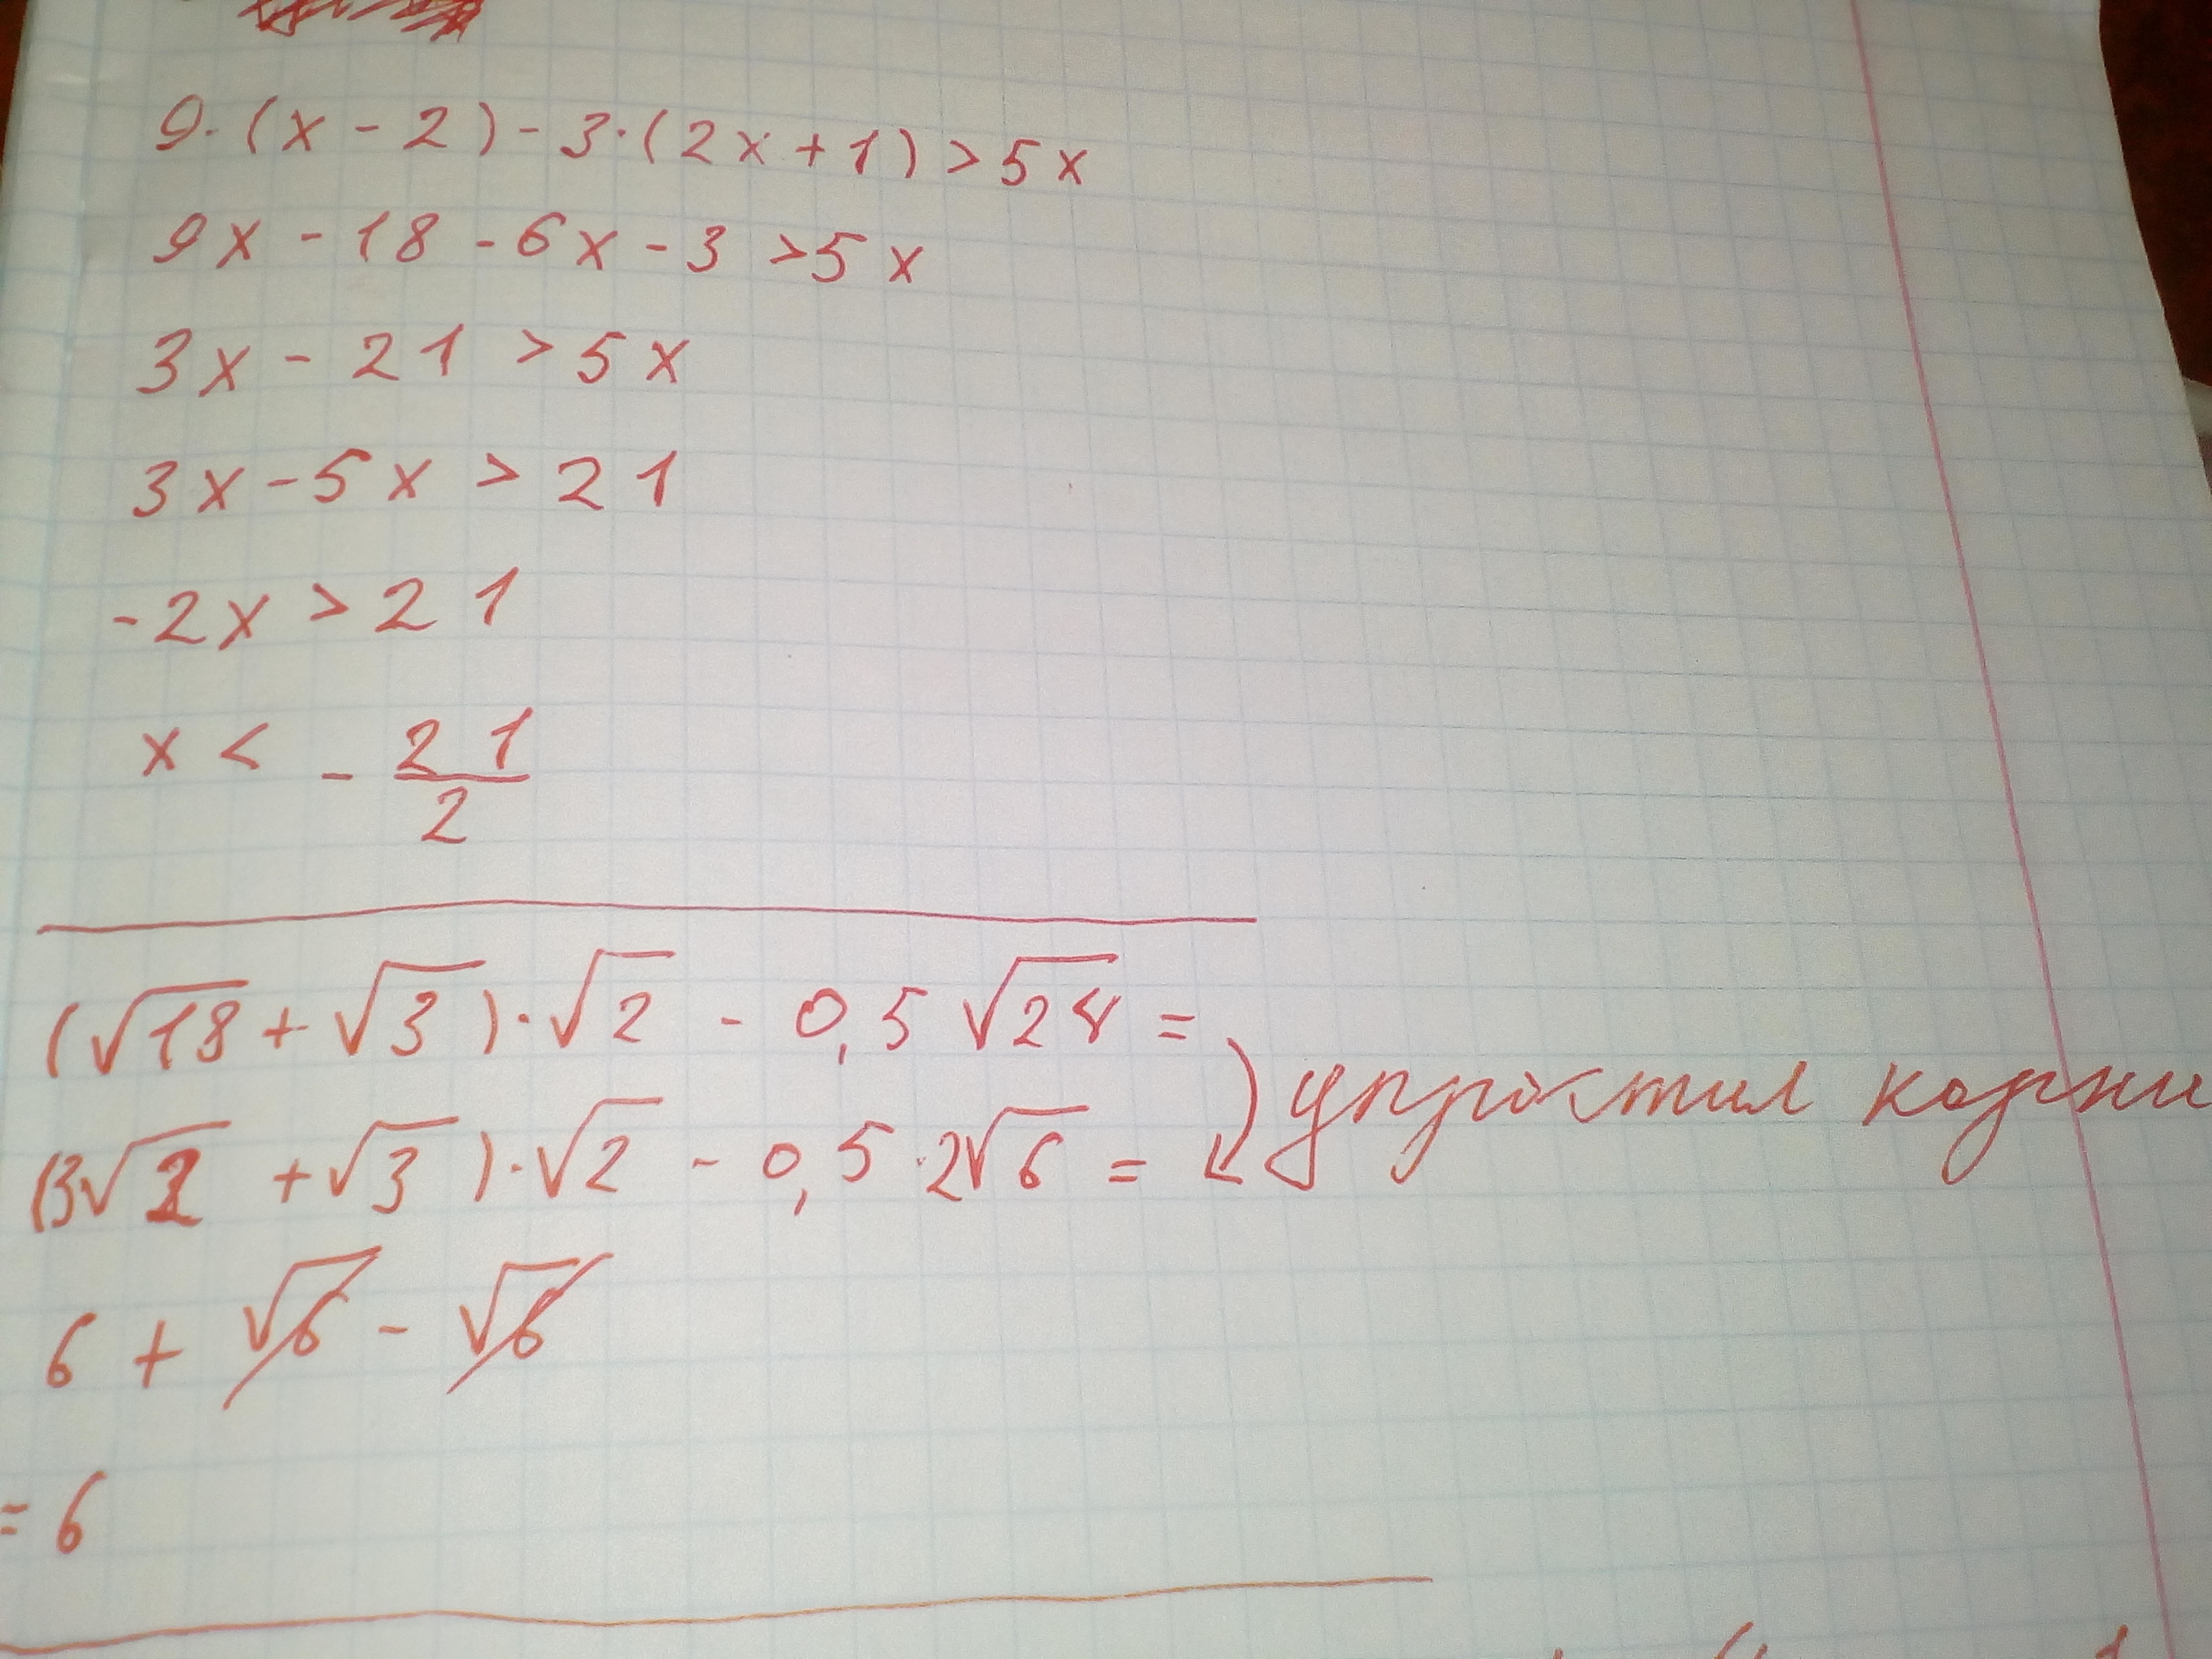 9·(x-2)-3·(2x+1)>5x
9x-18-6x-3>5x
3x-21>5x
3x-5x>21
-2x>21
x<-21/2
(√18+√3)·√2-0,5√24=
(3√2+√3)·√2-0,5·2√6= упростил корни
6+√6-√6
=6